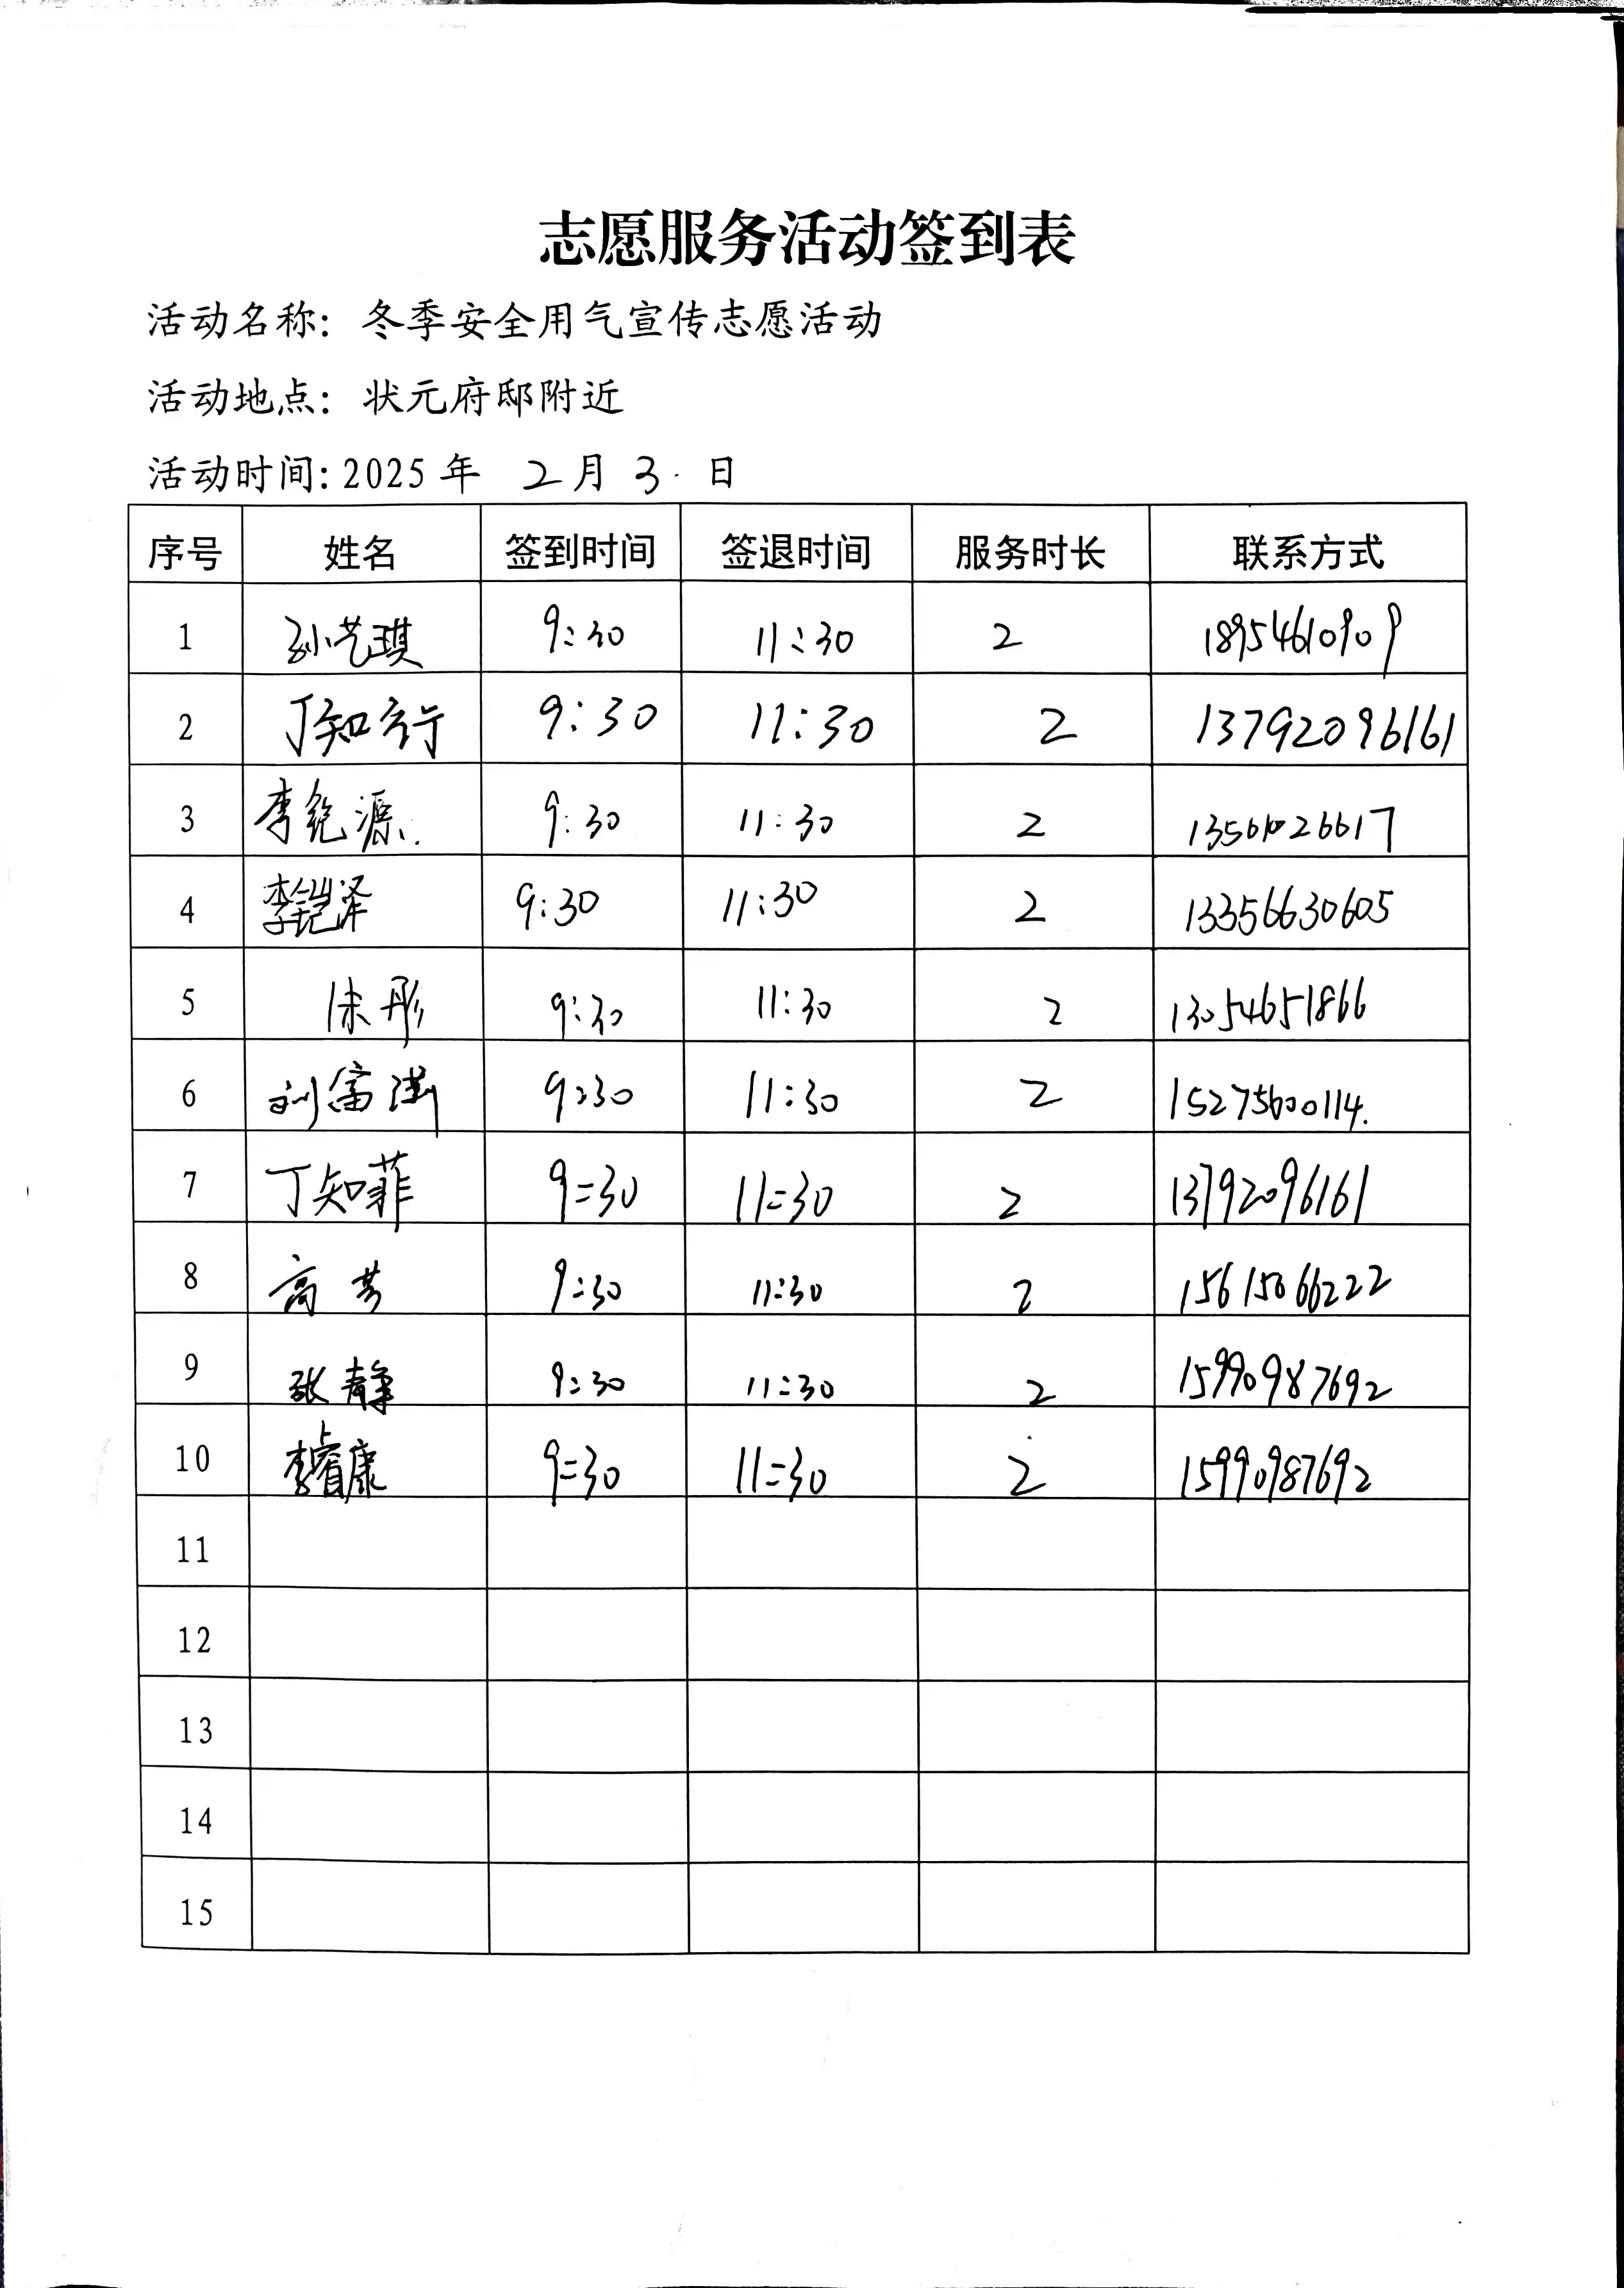 志愿服务活动签到表
活动名称：冬季安全用气宣传志愿活动
活动地点：状元府邸附近
活动时间：2025 年 2 月 3 日
序号 姓名 签到时间 签退时间 服务时长 联系方式
1 孙艺琪 9:30 11:30 2 18954610909
2 丁知行 9:30 11:30 2 13792096161
3 李纯源 9:30 11:30 2 13561026617
4 李铠泽 9:30 11:30 2 13356630605
5 彤 9:30 11:30 2 13054651866
6 刘富 9:30 11:30 2 15275600114
7 丁知菲 9:30 11:30 2 13792096161
8 高芳 9:30 11:30 2 15615066222
9 张静 9:30 11:30 2 15990987692
10 李睿康 9:30 11:30 2 15990987692
11
12
13
14
15